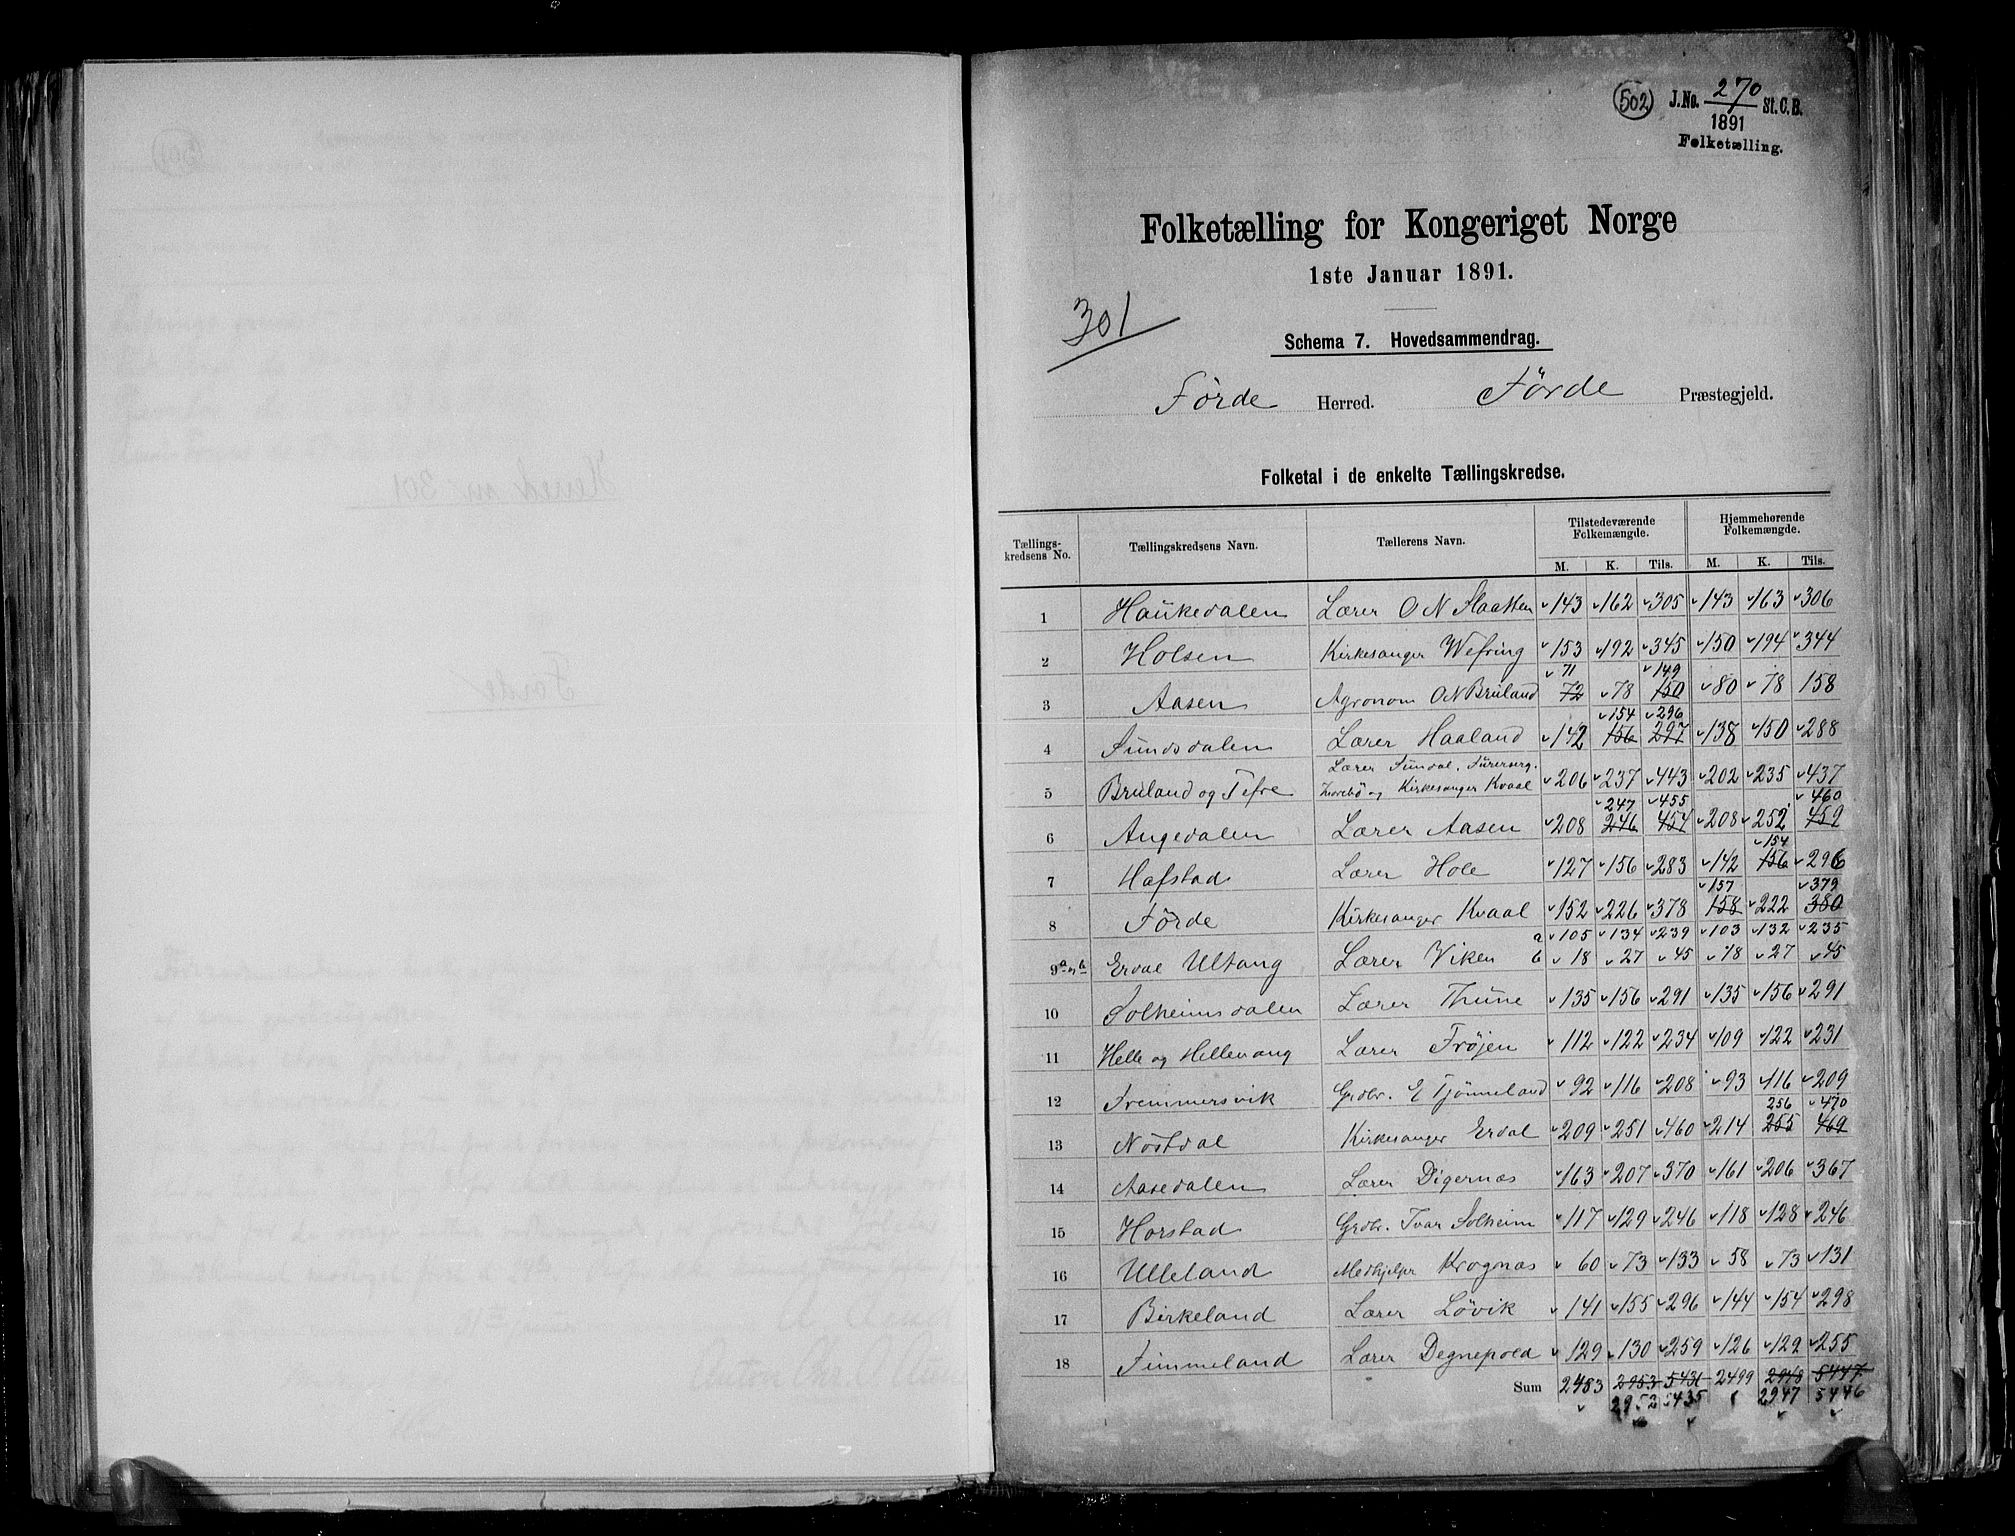 502 J.No. 270 St.C.B.
1891
Folketælling.
Folketælling for Kongeriget Norge
1ste Januar 1891.
301
Schema 7. Hovedsammendrag.
Førde Herred. Førde Præstegjeld.
Folketal i de enkelte Tællingskredse.
Tællings-kredsens No. Tællingskredsens Navn. Tællerens Navn. Tilstedeværende Folkemængde. Hjemmehørende Folkemængde.
M. K. Tils. M. K. Tils.
1 Haukedalen Lærer O N Slaatten 143 162 305 143 163 306
2 Holsen Kirkesanger Wefring 153 192 345 150 194 344
71 149
3 Aasen Agronom O N Bruland 72 78 150 80 78 158
154 296
4 Sundsdalen Lærer Haaland 142 156 297 138 150 288
Lærer Sundal,
5 Bruland og Tefre Kirkesanger Kvaal 206 237 443 202 235 437
247 455 460
6 Angedalen Lærer Aasen 208 246 454 208 252 459
154
7 Hafstad Lærer Hole 127 156 283 142 156 296
157 379
8 Førde Kirkesanger Kvaal 152 226 378 158 222 380
a 105 134 239 103 132 235
9 a og b Erdal Ultang Lærer Viken b 18 27 45 18 27 45
10 Solheimsdalen Lærer Thune 135 156 291 135 156 291
11 Helle og Hellevang Lærer Frøjen 112 122 234 109 122 231
12 Fremmersvik Grdbr. E Tjønneland 92 116 208 93 116 209
256 470
13 Nøstdal Kirkesanger Erdal 209 251 460 214 255 469
14 Aasedalen Lærer Digernæs 163 207 370 161 206 367
15 Horstad Grdbr. Ivar Solheim 117 129 246 118 128 246
16 Ulleland Medhjelpr Krognæs 60 73 133 58 73 131
17 Birkeland Lærer Løvik 141 155 296 144 154 298
18 Simmeland Lærer Degnepold 129 130 259 126 129 255
Sum 2483 2953 5431 2499 2948 5447
2952 5435 2947 5446